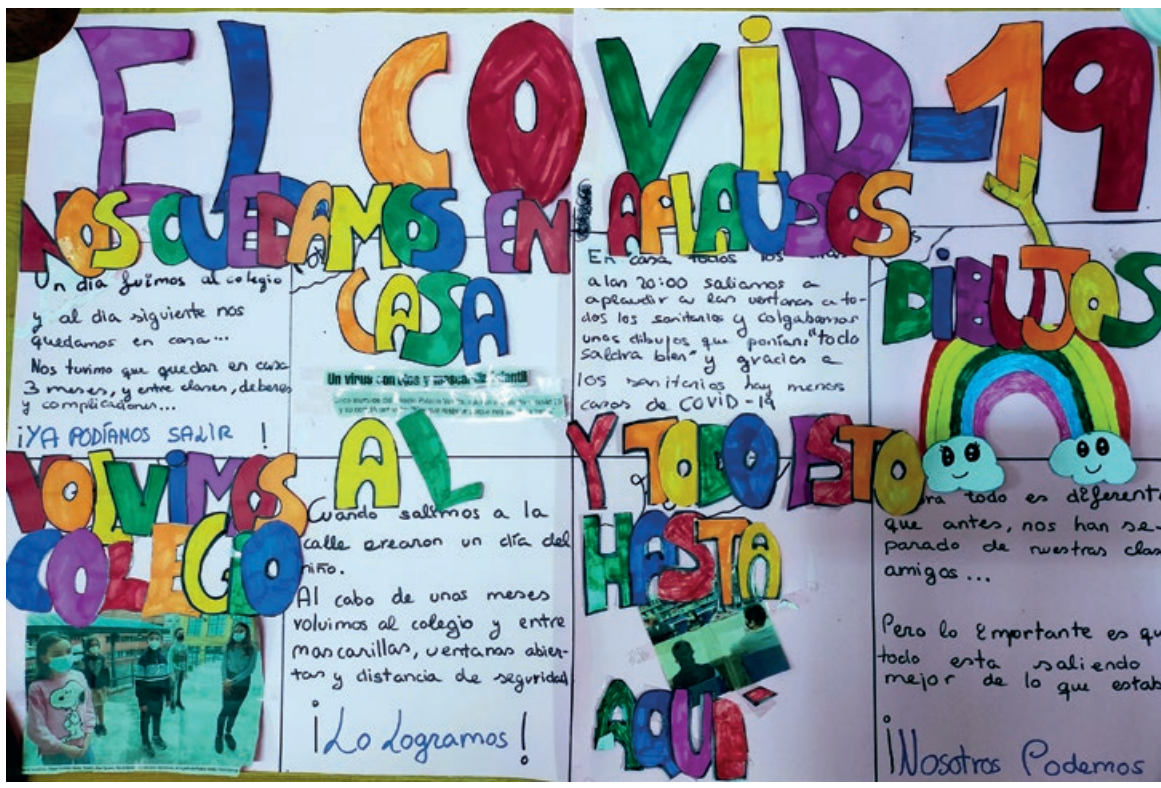 EL COViD-19
NOS QUEDAMOS EN
CASA
Un día fuimos al colegio
y al día siguiente nos
quedamos en casa...
Nos tuvimo que quedar en casa
3 meses, y entre clases, deberes
y complicaciones...
¡YA PODÍAMOS SALIR !
Un virus con ojos y
APLAUSOS Y
DIBUJOS
En casa todos los
a las 20:00 saliamos a
aplaudir a las ventanas a to-
dos los sanitarios y colgabamos
unos dibujos que ponían, "todo
saldra bien" y gracias a
los sanitarios hay menos
casos de COVID-19
VOLViMOS AL
COLEGIO
Cuando salimos a la
calle crearon un día del
niño.
Al cabo de unos meses
volvimos al colegio y entre
mascarillas, ventanas abier-
tas y distancia de seguridad
¡Lo Logramos!
Y TODO ESTO
HASTA
AQUI
todo es diferent
que antes, nos han se-
parado de nuestras clas
amigos...
Pero lo Emportante es qu
todo esta saliendo
mejor de lo que estab
¡Nosotros Podemos